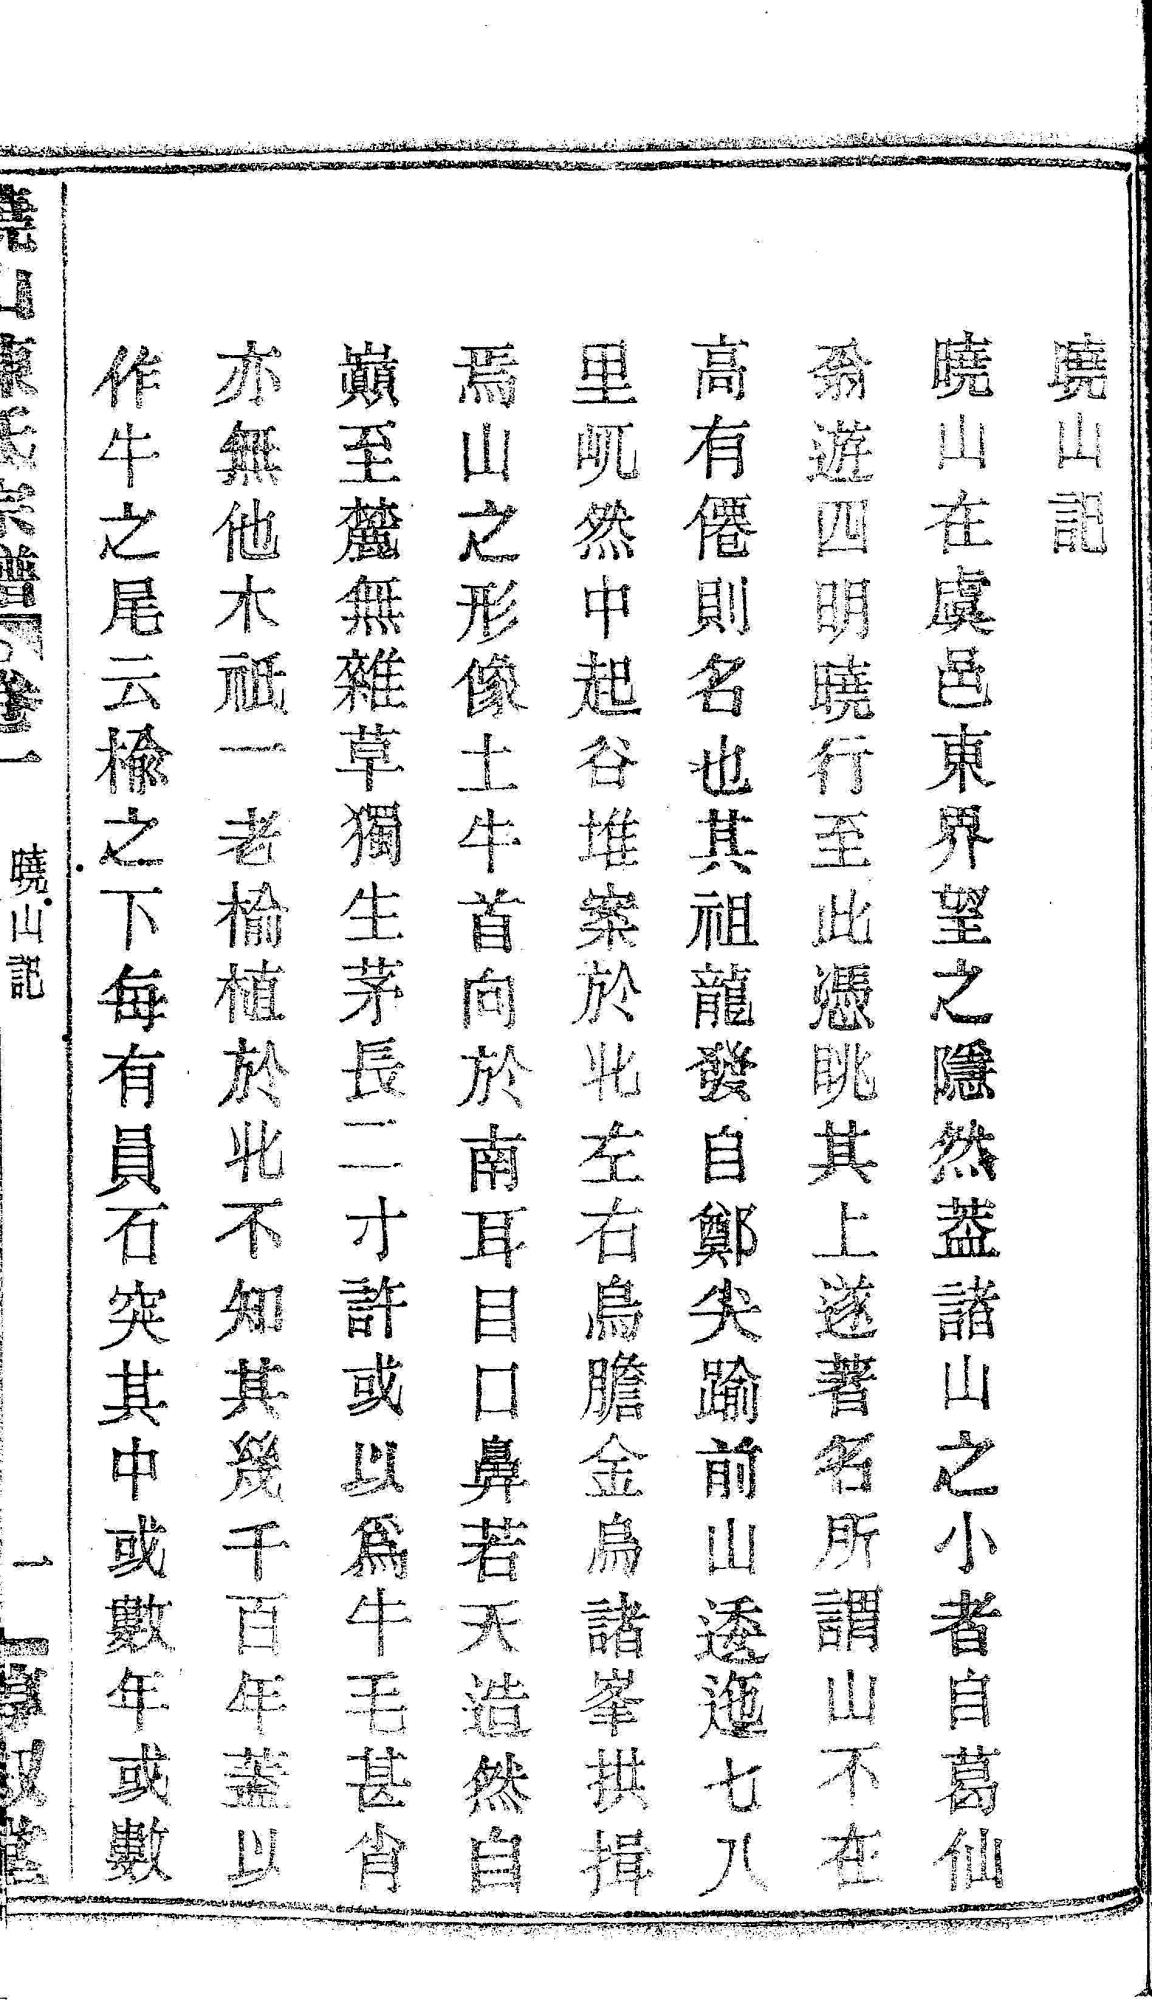 曉山記
曉山在虞邑東界望之隱然葢諸山之小者自葛仙
翁遊四明曉行至此憑眺其上遂著名所謂山不在
高有僊則名也其祖龍發自鄭尖踰前山逶迤七八
里屼然中起谷堆案於北左右烏膽金烏諸峯拱揖
焉山之形像土牛首向於南耳目口鼻若天造然自
巔至麓無雜草獨生茅長二寸許或以爲牛毛甚肖
亦無他木祇一老楡植於北不知其幾千百年葢以
作牛之尾云楡之下每有員石突其中或數年或數
曉山陳氏宗譜 卷一 曉山記 一 敘堂